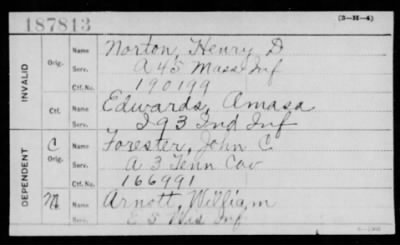 187813
(3-H-4)
INVALID
Orig. Name Norton, Henry D
Serv. A 45 Mass Inf
Ctf. No. 190199
Ctf. Name Edwards, Amasa
Serv. I 93 Ind Inf
DEPENDENT
C Orig. Name Forester, John C
Serv. A 3 Tenn Cav
Ctf. No. 166991
M Name Arnott, William
Serv. E 5 Wis Inf